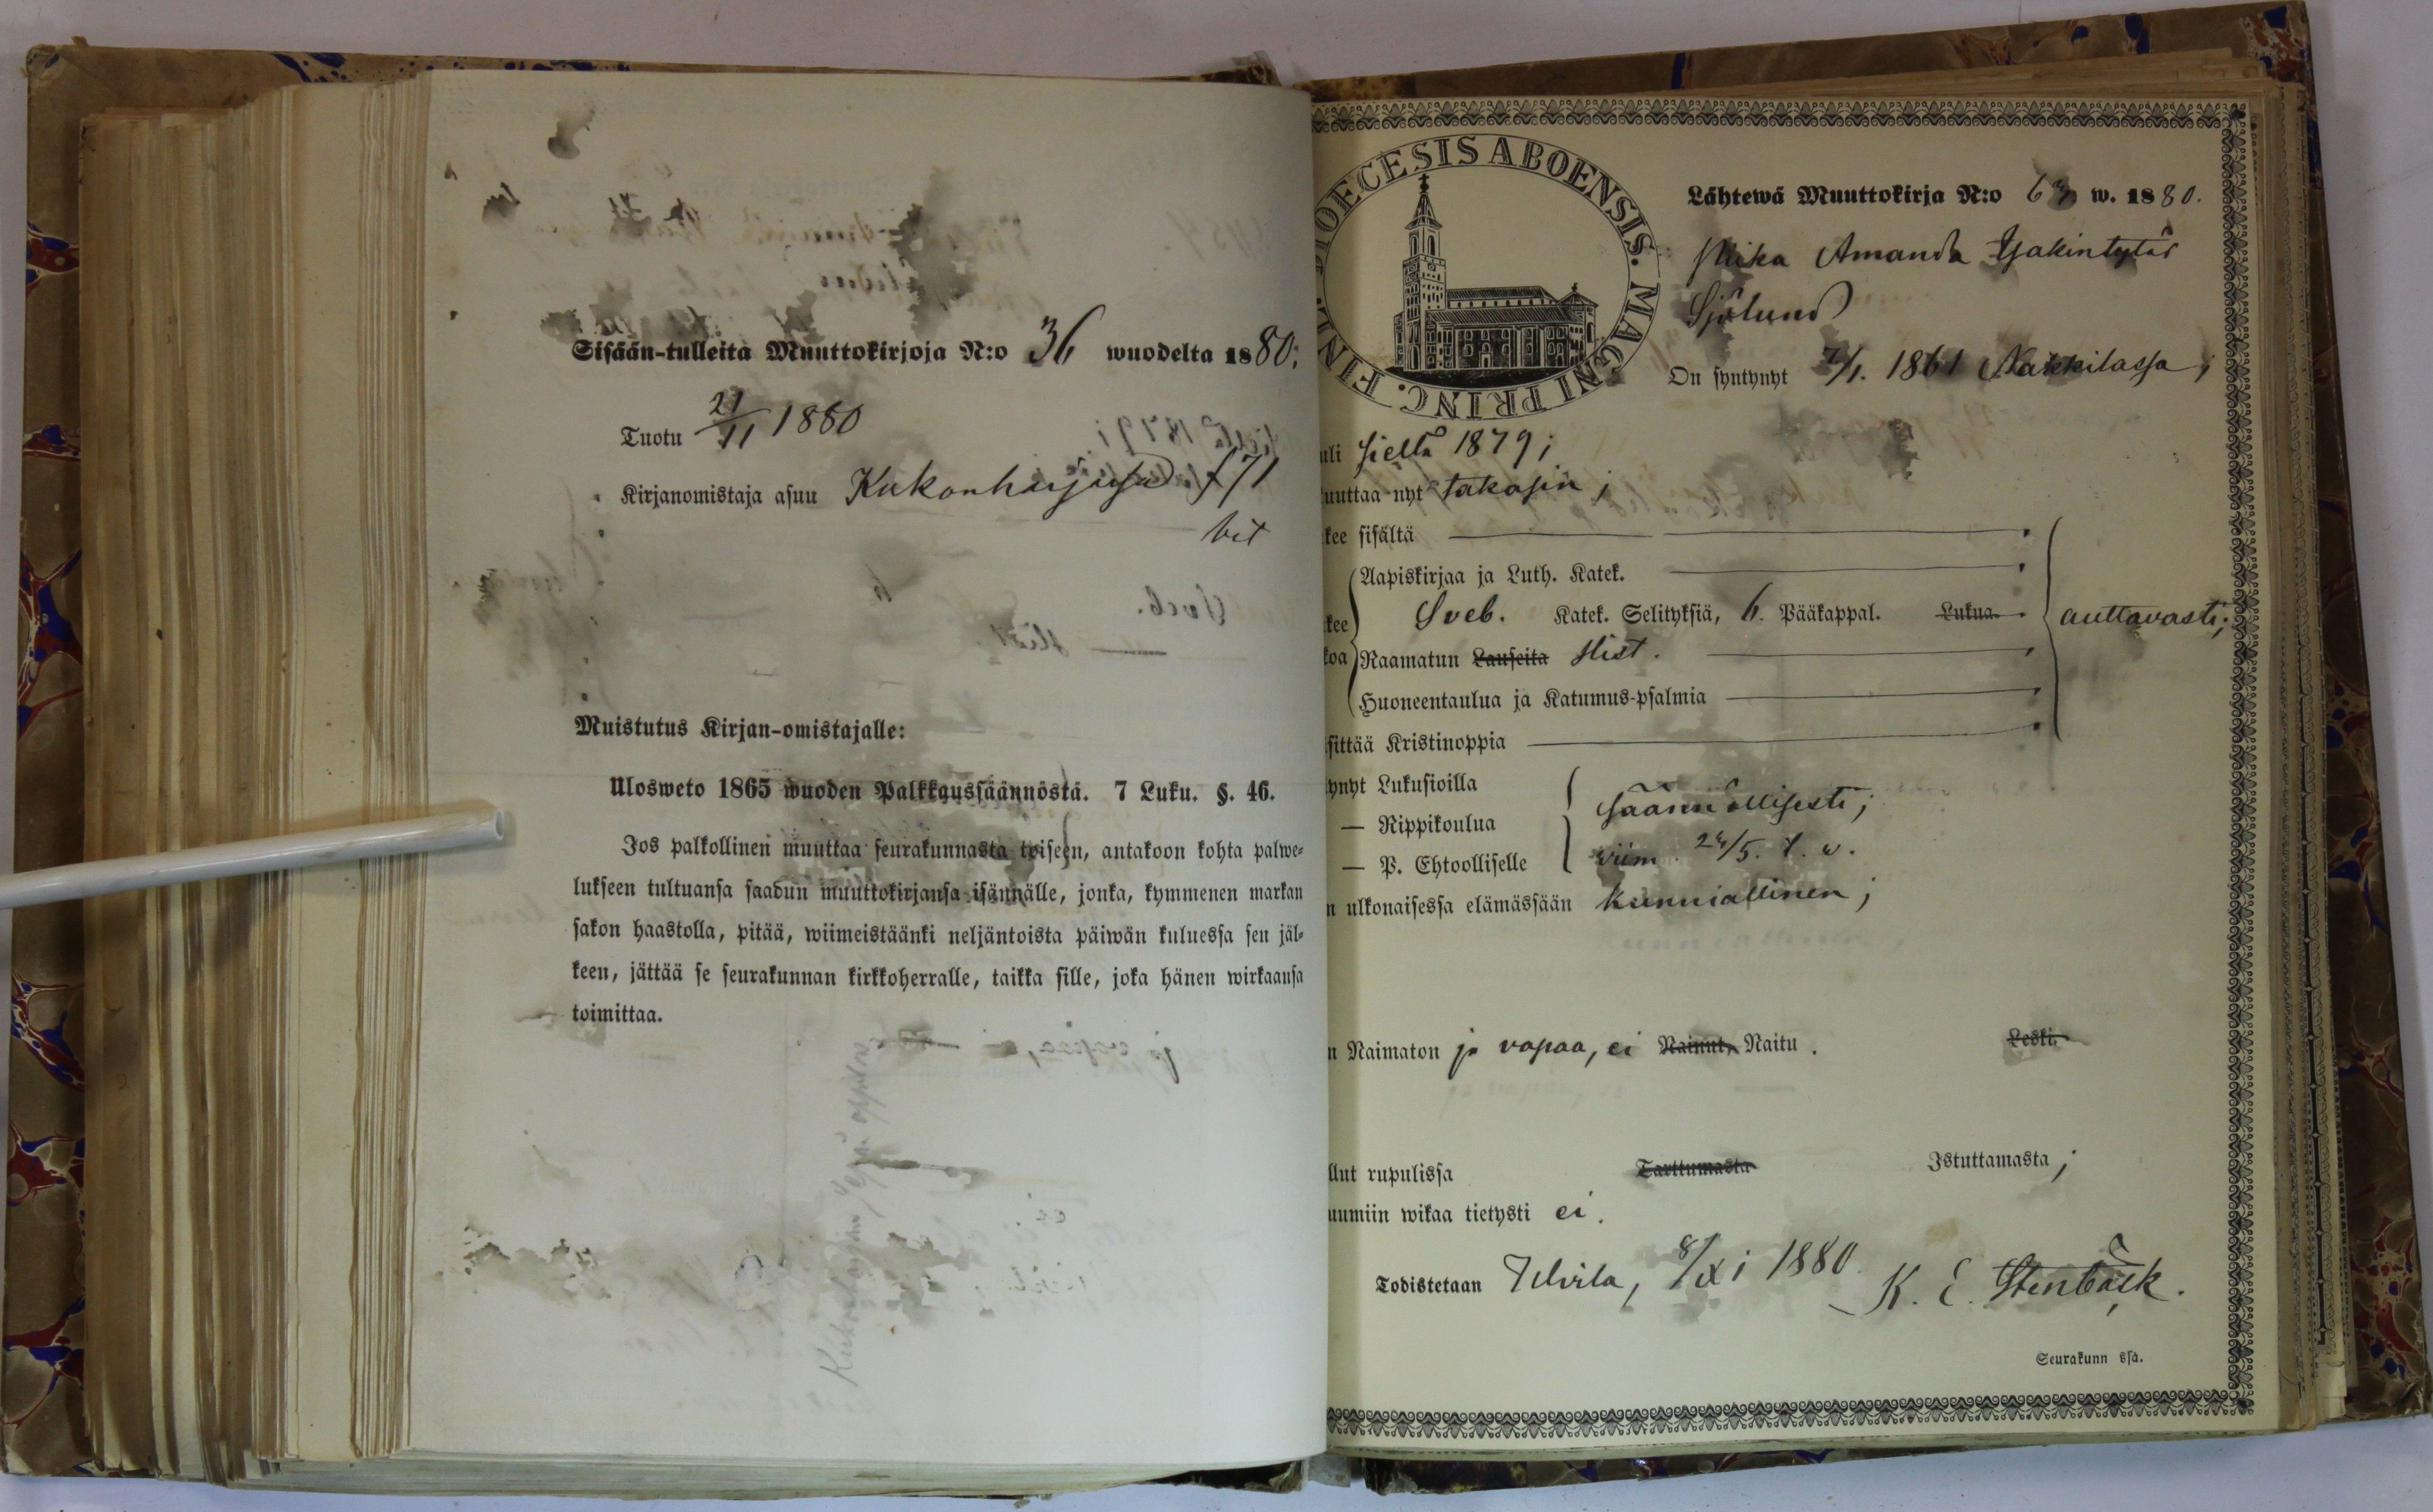 Sisään-tulleita Muuttokirjoja N:o 36 wuodelta 1880;
Tuotu 21/11 1880
Kirjanomistaja asuu Kukonharjassa f71
bet
Muistutus Kirjan-omistajalle:
Ulosweto 1865 wuoden Palkkaussäännöstä. 7 Luku. §. 46.
Jos palkollinen muuttaa seurakunnasta toiseen, antakoon kohta palwe-
lukseen tultuansa saadun muuttokirjansa isännälle, jonka, kymmenen markan
sakon haastolla, pitää, wiimeistäänki neljäntoista päiwän kuluessa sen jäl-
keen, jättää se seurakunnan kirkkoherralle, taikka sille, joka hänen wirkaansa
toimittaa.
DIOECESIS ABOENSIS. MAGNI PRINC. FINL.
Lähtewä Muuttokirja N:o w. 1880.
Amanda Isakintytär
Sjölund
On syntynyt 1861 Nakkilassa;
uli sieltä 1879;
uuttaa nyt takasin;
kee sisältä
Aapiskirjaa ja Luth. Katek.
kee Sveb. Katek. Selityksiä, 6. Pääkappal. Lukua. auttavasti;
koa Raamatun Lauseita Hist.
Huoneentaulua ja Katumus-psalmia
sittää Kristinoppia
ynyt Lukusioilla
— Rippikoulua säännöllisesti;
— P. Ehtoolliselle viim. 24/5. t. v.
n ulkonaisessa elämässään kunniallinen;
n Naimaton ja vapaa, ei Nainut, Naitu. Leski.
llut rupulissa Tarttumasta Istuttamasta;
uumiin wikaa tietysti ei.
Todistetaan Ulvila, 8/XI 1880 K. E. Stenbäck.
Seurakunn ssa.